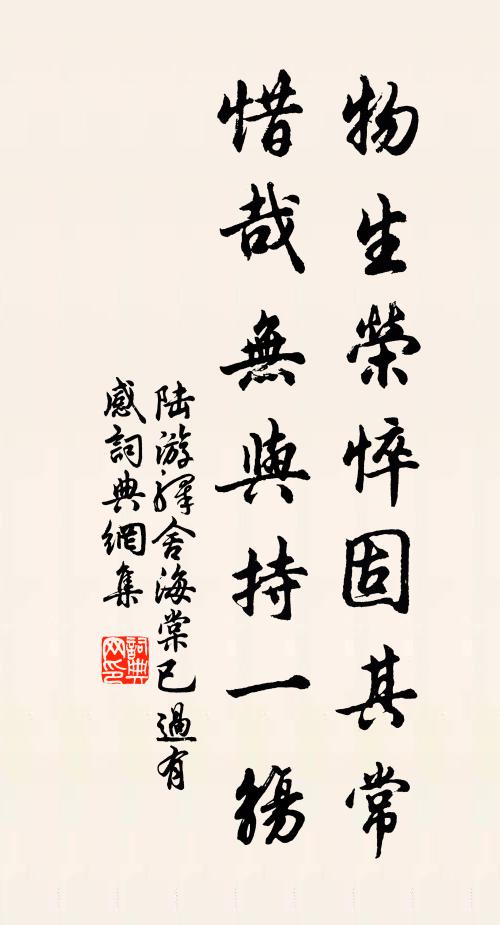 物生榮悴固其常
惜哉無與持一觴
陆游驛舍海棠已過有
感詞典網集
詞典
网印